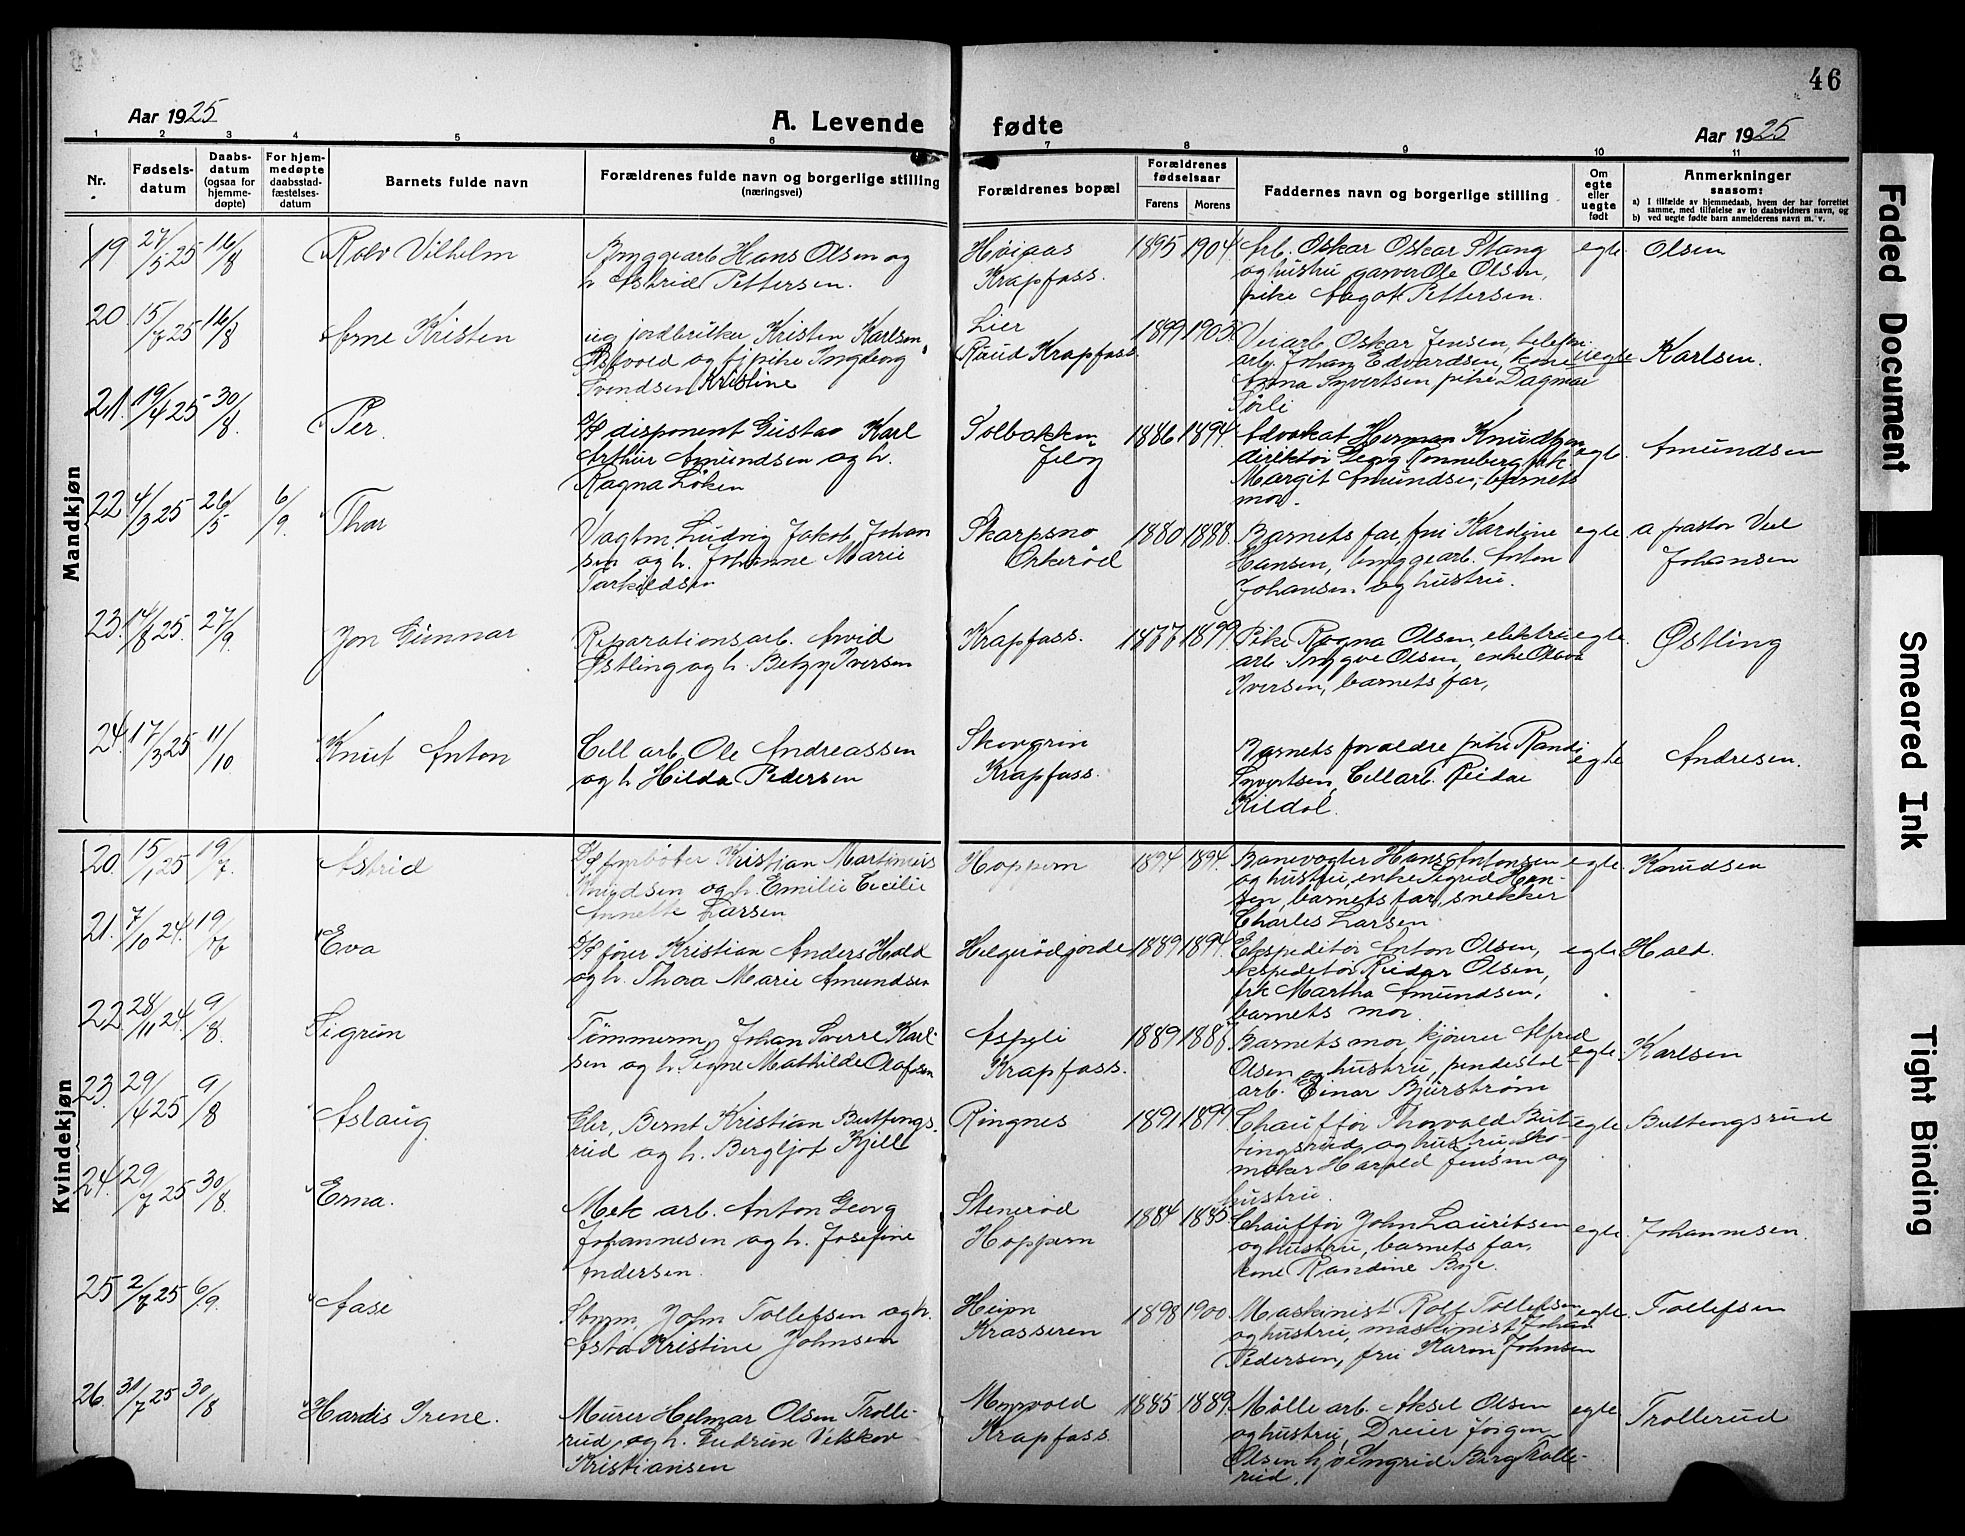 46
Aar 1925
A. Levende fødte
Aar 1925
1 2 3 4 5 6 7 8 9 10 11
Nr.
Fødsels-
datum
Daabs-
datum
(ogsaa for
hjemme-
døpte)
For hjem-
medøpte
daabsstad-
fæstelses-
datum
Barnets fulde navn
Forældrenes fulde navn og borgerlige stilling
(næringsvei)
Forældrenes bopæl
Forældrenes
fødselsaar
Farens Morens
Faddernes navn og borgerlige stilling
Om
egte
eller
uegte
født
Anmerkninger
saasom:
a) I tilfælde av hjemmedaab, hvem der har forrettet
samme, med tilføielse av to daabsvidners navn, og
b) ved uegte fødte barn anmelderens navn m. v.
Mandkjøn
19 27/5 25 16/8 Rolv Vilhelm
Bryggearb Hans Olsen og
h Astrid Pettersen.
Høiaas
Krapfoss.
1895 1904
Arb. Oskar Oskar Stang
og hustru garver Ole Olsen,
pike Aagot Pettersen.
egte Olsen
20 15/7 25 16/8 Arne Kristen
ug jordbruker Kristen Karlsen
Østvold og tj pike Ingeborg
Svendsen Kristine
Lier
Ruud Krapfoss
1899 1905
Veiarb Oskar Jensen, telefon
arb. Johan Edvardsen, kone
Anna Syvertsen pike Dagmar
Törli
uegte Karlsen.
21. 19/4 25 30/8. Per.
D/S disponent Gustav Karl
Arthur Amundsen og h.
Ragna Løken
Solbakken
Jeløy
1886 1894.
Advokat Herman Knudtzon
direktør Georg Rønneberg frk
Margit Amundsen, barnets
mor.
egte. Amundsen
22. 4/3 25 26/5 6/9. Thor
Vagtm. Ludvig Jakob Johan
sen og h. Johanne Marie
Torkildsen
Skarpsno
Orkerød
1880 1888.
Barnets far, fru Kardine
Hansen, bryggearb. Anton
Johansen og hustru.
egte a pastor Veel
Johansen
23. 14/8 25. 27/9. Jon Gunnar
Reparationsarb. Arvid
Østling og h. Betzy Iversen
Krapfoss.
1877 1899.
Pike Ragna Olsen, elektri
arb. Yngve Olsen, enke Olava
Iversen, barnets far,
egte. Østling
24. 17/3 25 11/10 Knut Anton
Cell arb. Ole Andreassen
og h Hilda Pedersen
Skovgrin
Krapfoss.
Barnets forældre pike Randi
Syvertsen, Cell arb. Reidar
Kildal.
egte Andresen.
Kvindekjøn
20. 15/1 25 19/7. Astrid
D/S fyrbøter Kristian Martinius
Knudsen og h. Emilie Cecilie
Annette Larsen
Hoppern
1894 1894.
Banevogter Hans Antonsen
og hustru, enke Sigrid Han-
sen, barnets far, snekker
Charles Larsen
egte Knudsen
21. 7/10 24. 19/7 Eva
D/S fører Kristian Anders Hald
og h. Thora Marie Amundsen
Helgerødgjorde
1889 1894.
Ekspeditør Anton Olsen,
ekspeditør Reidar Olsen,
frk Martha Amundsen,
barnets mor.
egte Hald.
22. 28/11 24. 9/8. Sigrun
Tømmerm. Johan Sverre Karl-
sen og h. Signe Mathilde Olafsen
Aspeli
Krapfoss.
1889
Barnets mor, kjører Alfred
Olsen og hustru, pendestol
arb. Einar Bjurstrøm
egte. Karlsen
23. 29/4 25 9/8 Aslaug
Eier, Bernt Kristian Buttings-
rud og h. Bergljot Kjell
Ringnes
1891 1899
Chauffør Thorvald But-
tingsrud og hustru, sko-
maker Harald Jensen og
hustru.
egte Buttengsrud
24. 29/7 25 30/8. Erna.
Mek arb. Anton Georg
Johannesen og h. Josefine
Andersen.
Stenerød
Hoppern
1884 1885.
Chauffør John Lauritsen
og hustru, barnets far,
kone Randine Bye.
egte. Johannesen
25 2/7 25 6/9. Aase
Storm. John Tollefsen og h.
Asta Kristine Johnsen
Heien
Krasseren
1898 1900
Maskinist Rolf Tollefsen
og hustru, maskinist Johan
Pedersen, fru Karen Johnsen
egte. Tollefsen
26. 31/7 25 30/8 Hardis Irene.
Murer Helmar Olsen Trolle-
rud, og h. Gudrun Velskov
Kristiansen
Myrvold
Krapfoss
1885 1889.
Mølle arb. Aksel Olsen
og hustru, Dreier Jørgen
Olsen h v Yngrid Berg Trolle-
rud.
egte Trollerud
Faded Document
Smeared Ink
Tight Binding